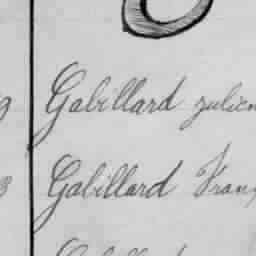 Gabillard Julien
Gabillard Fran